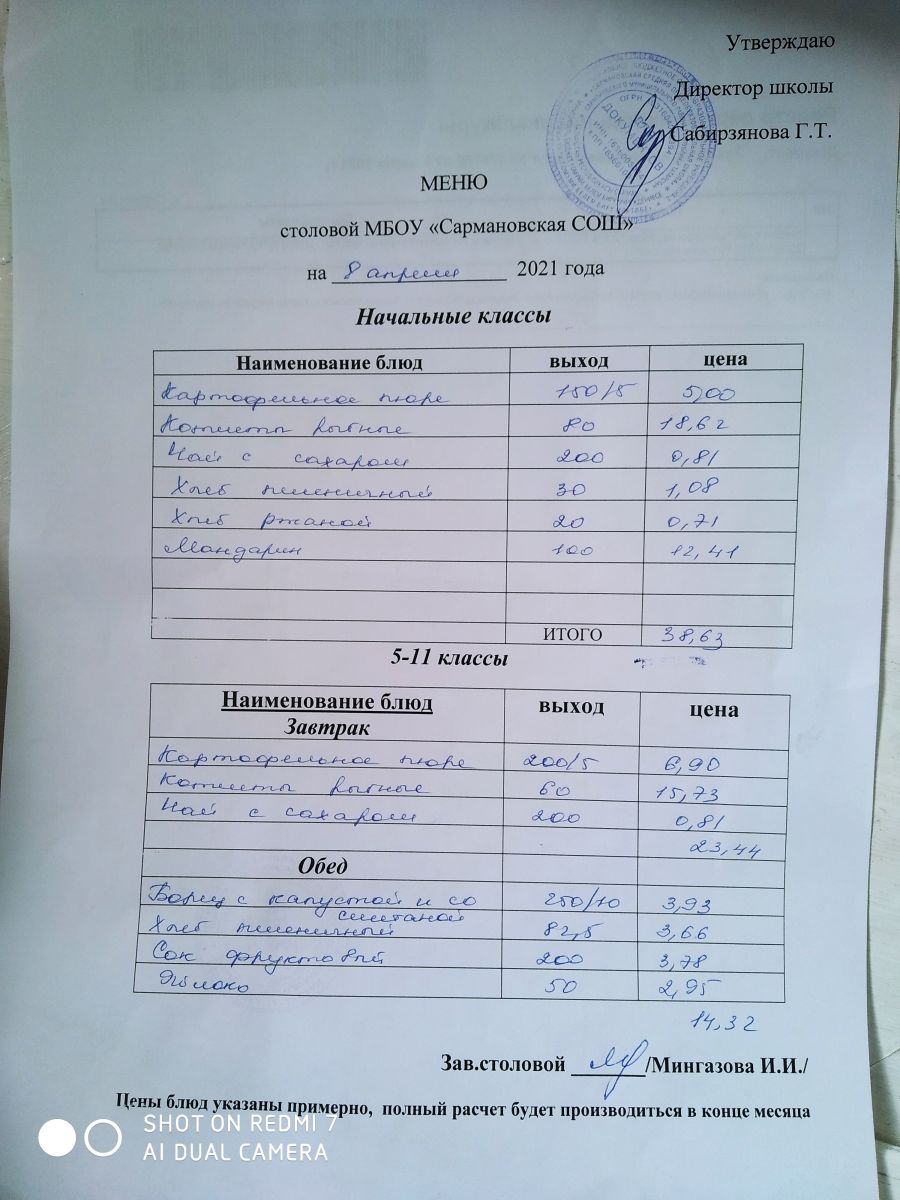 Утверждаю
Директор школы
Сабирзянова Г.Т.
МЕНЮ
столовой МБОУ «Сармановская СОШ»
на 8 апреля 2021 года
Начальные классы
Наименование блюд выход цена
Картофельное пюре 150/5 5,00
Котлеты рыбные 80 18,62
Чай с сахаром 200 0,81
Хлеб пшеничный 30 1,08
Хлеб ржаной 20 0,71
Мандарин 100 12,41
ИТОГО 38,63
5-11 классы
Наименование блюд выход цена
Завтрак
Картофельное пюре 200/5 6,90
Котлеты рыбные 60 15,73
Чай с сахаром 200 0,81
23,44
Обед
Борщ с капустой и со 250/10 3,93
сметаной
Хлеб пшеничный 82,5 3,66
Сок фруктовый 200 3,78
Яблоко 50 2,95
14,32
Зав.столовой /Мингазова И.И./
Цены блюд указаны примерно, полный расчет будет производиться в конце месяца
SHOT ON REDMI 7
AI DUAL CAMERA